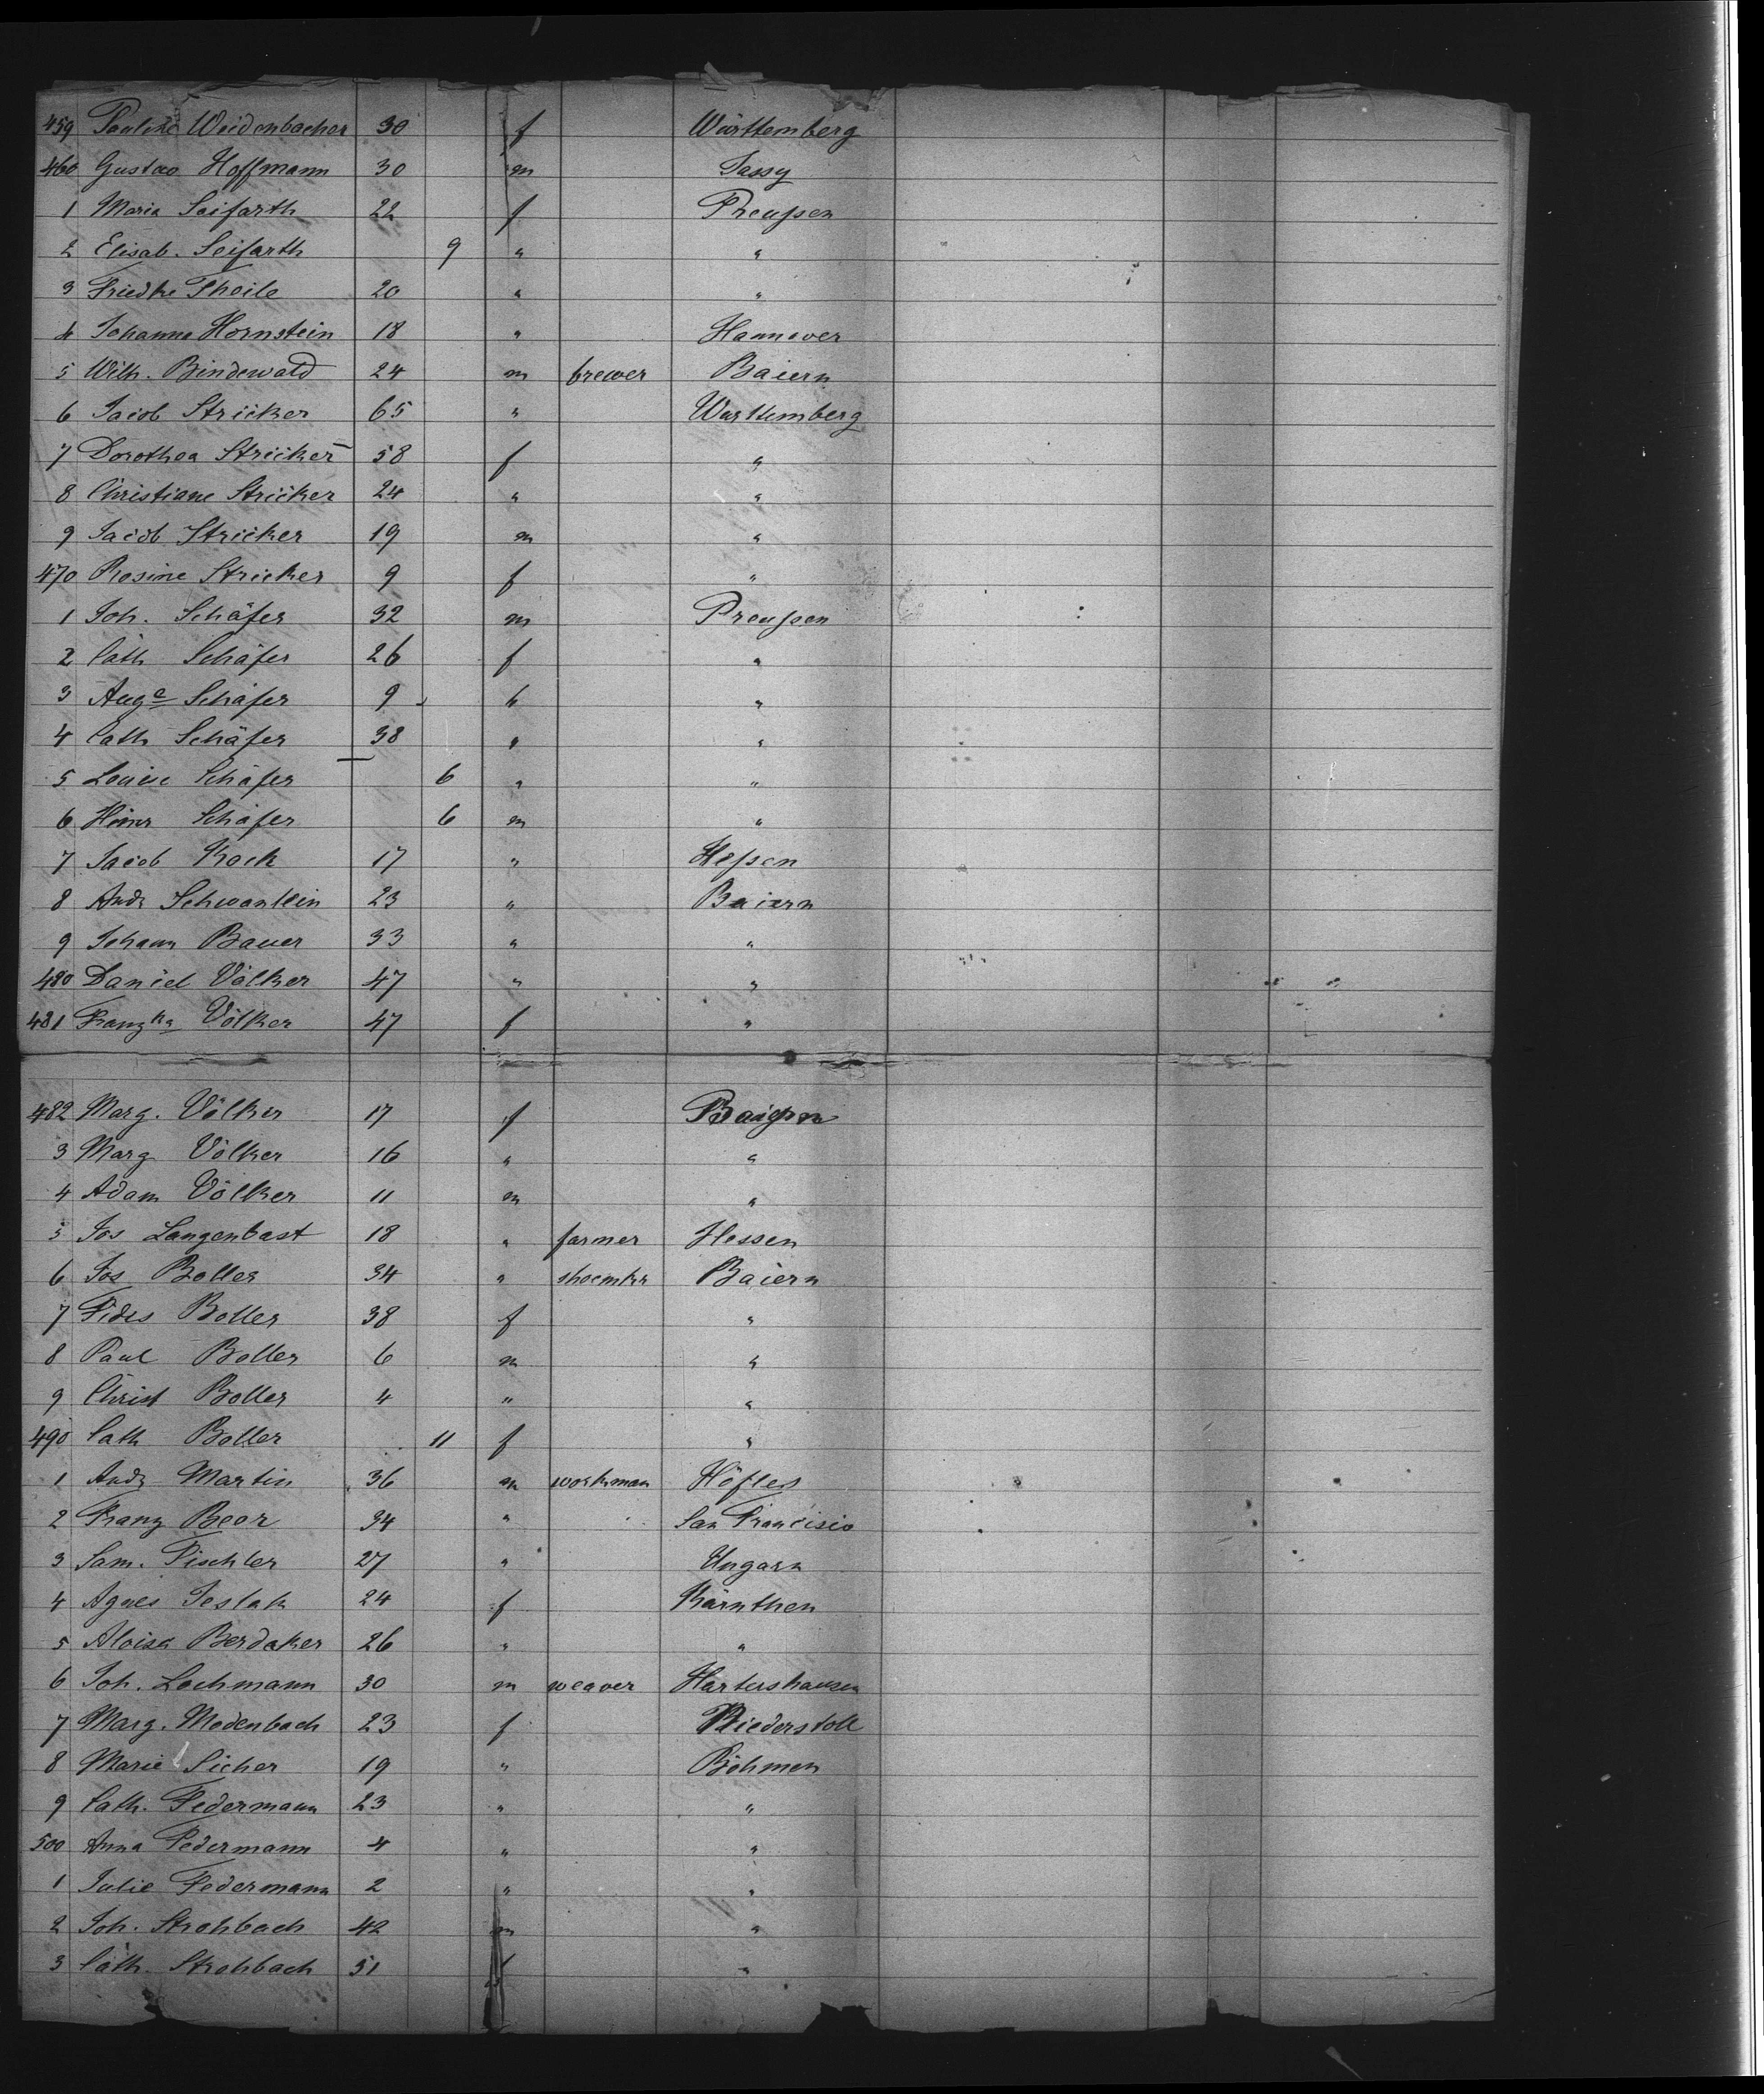 459 Pauline Weidenbacher 30 f Württemberg
460 Gustav Hoffmann 30 m Jassy
1 Maria Seifarth 22 f Preußen
2 Elisab. Seifarth 9 " "
3 Friedke Theile 20 " "
4 Johanna Hornstein 18 " Hannover
5 Wilh. Bindewald 24 m brewer Baiern
6 Jacob Stricker 65 " Württemberg
7 Dorothea Stricker 58 f "
8 Christiane Stricker 24 " "
9 Jacob Stricker 19 m "
470 Rosine Stricker 9 f "
1 Joh. Schäfer 32 m Preußen
2 Cath Schäfer 26 f "
3 Auge Schäfer 9 " "
4 Cath Schäfer 38 " "
5 Louise Schäfer 6 " "
6 Hinr Schäfer 6 m "
7 Jacob Kock 17 " Heßen
8 Andr Schwanlein 23 " Baiern
9 Johann Bauer 33 " "
480 Daniel Völker 47 " "
481 Franzka Völker 47 f "
482 Marg. Völker 17 f Baiern
3 Marg Völker 16 " "
4 Adam Völker 11 m "
5 Jos Langenbast 18 " farmer Hessen
6 Jos Boller 34 " shoemkr Baiern
7 Fides Boller 38 f "
8 Paul Boller 6 m "
9 Christ Boller 4 " "
490 Cath Boller 11 f "
1 Andr Martin 36 m workman Höfles
2 Franz Beor 34 " San Francisio
3 Sam. Fischler 27 " Ungarn
4 Agnes Jeslak 24 f Kärnthen
5 Aloisa Berdaker 26 " "
6 Joh. Lochmann 30 m weaver Hartershausen
7 Marg. Modenbach 23 f
8 Marie Sicher 19 " Böhmen
9 Cath. Federmann 23 " "
500 Anna Federmann 4 " "
1 Julie Federmann 2 " "
2 Joh. Strohbach 42 m "
3 Cath. Strohbach 51 f "